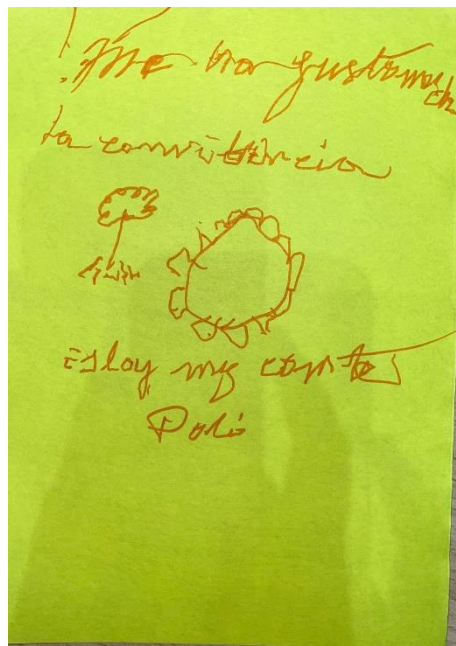 ¡Me ha gustado mu
ch
la convivencia
Estoy muy conte
Poli